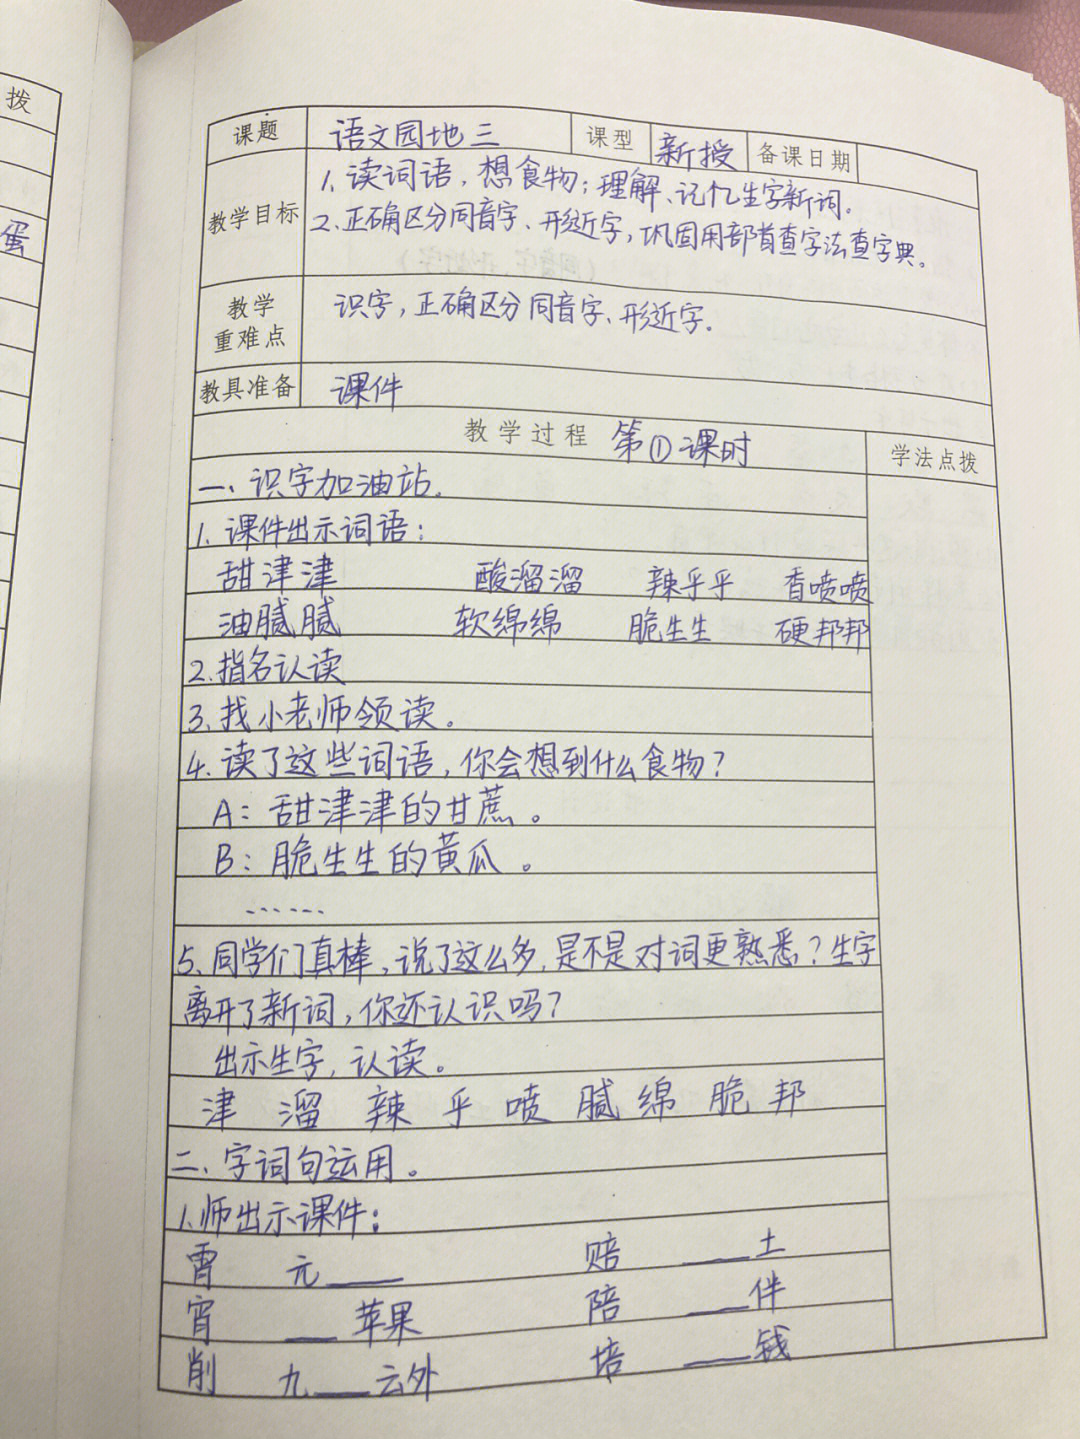 拨
蛋
课题 语文园地三 课型 新授 备课日期
教学目标
1、读词语，想食物；理解、记忆生字新词。
2、正确区分同音字、形近字，巩固用部首查字法查字典。
教学
重难点
识字，正确区分同音字、形近字.
教具准备 课件
教学过程 第①课时 学法点拨
一、识字加油站.
1. 课件出示词语：
甜津津 酸溜溜 辣乎乎 香喷喷
油腻腻 软绵绵 脆生生 硬邦邦
2.指名认读
3、找小老师领读。
4. 读了这些词语，你会想到什么食物？
A：甜津津的甘蔗。
B：脆生生的黄瓜。
……
5、同学们真棒，说了这么多，是不是对词更熟悉？生字
离开了新词，你还认识吗？
出示生字，认读。
津 溜 辣 乎 喷 腻 绵 脆 邦
二、字词句运用。
1.师出示课件：
霄 元___ 赔 ___土
宵 ___苹果 陪 ___伴
削 九___云外 培 ___钱